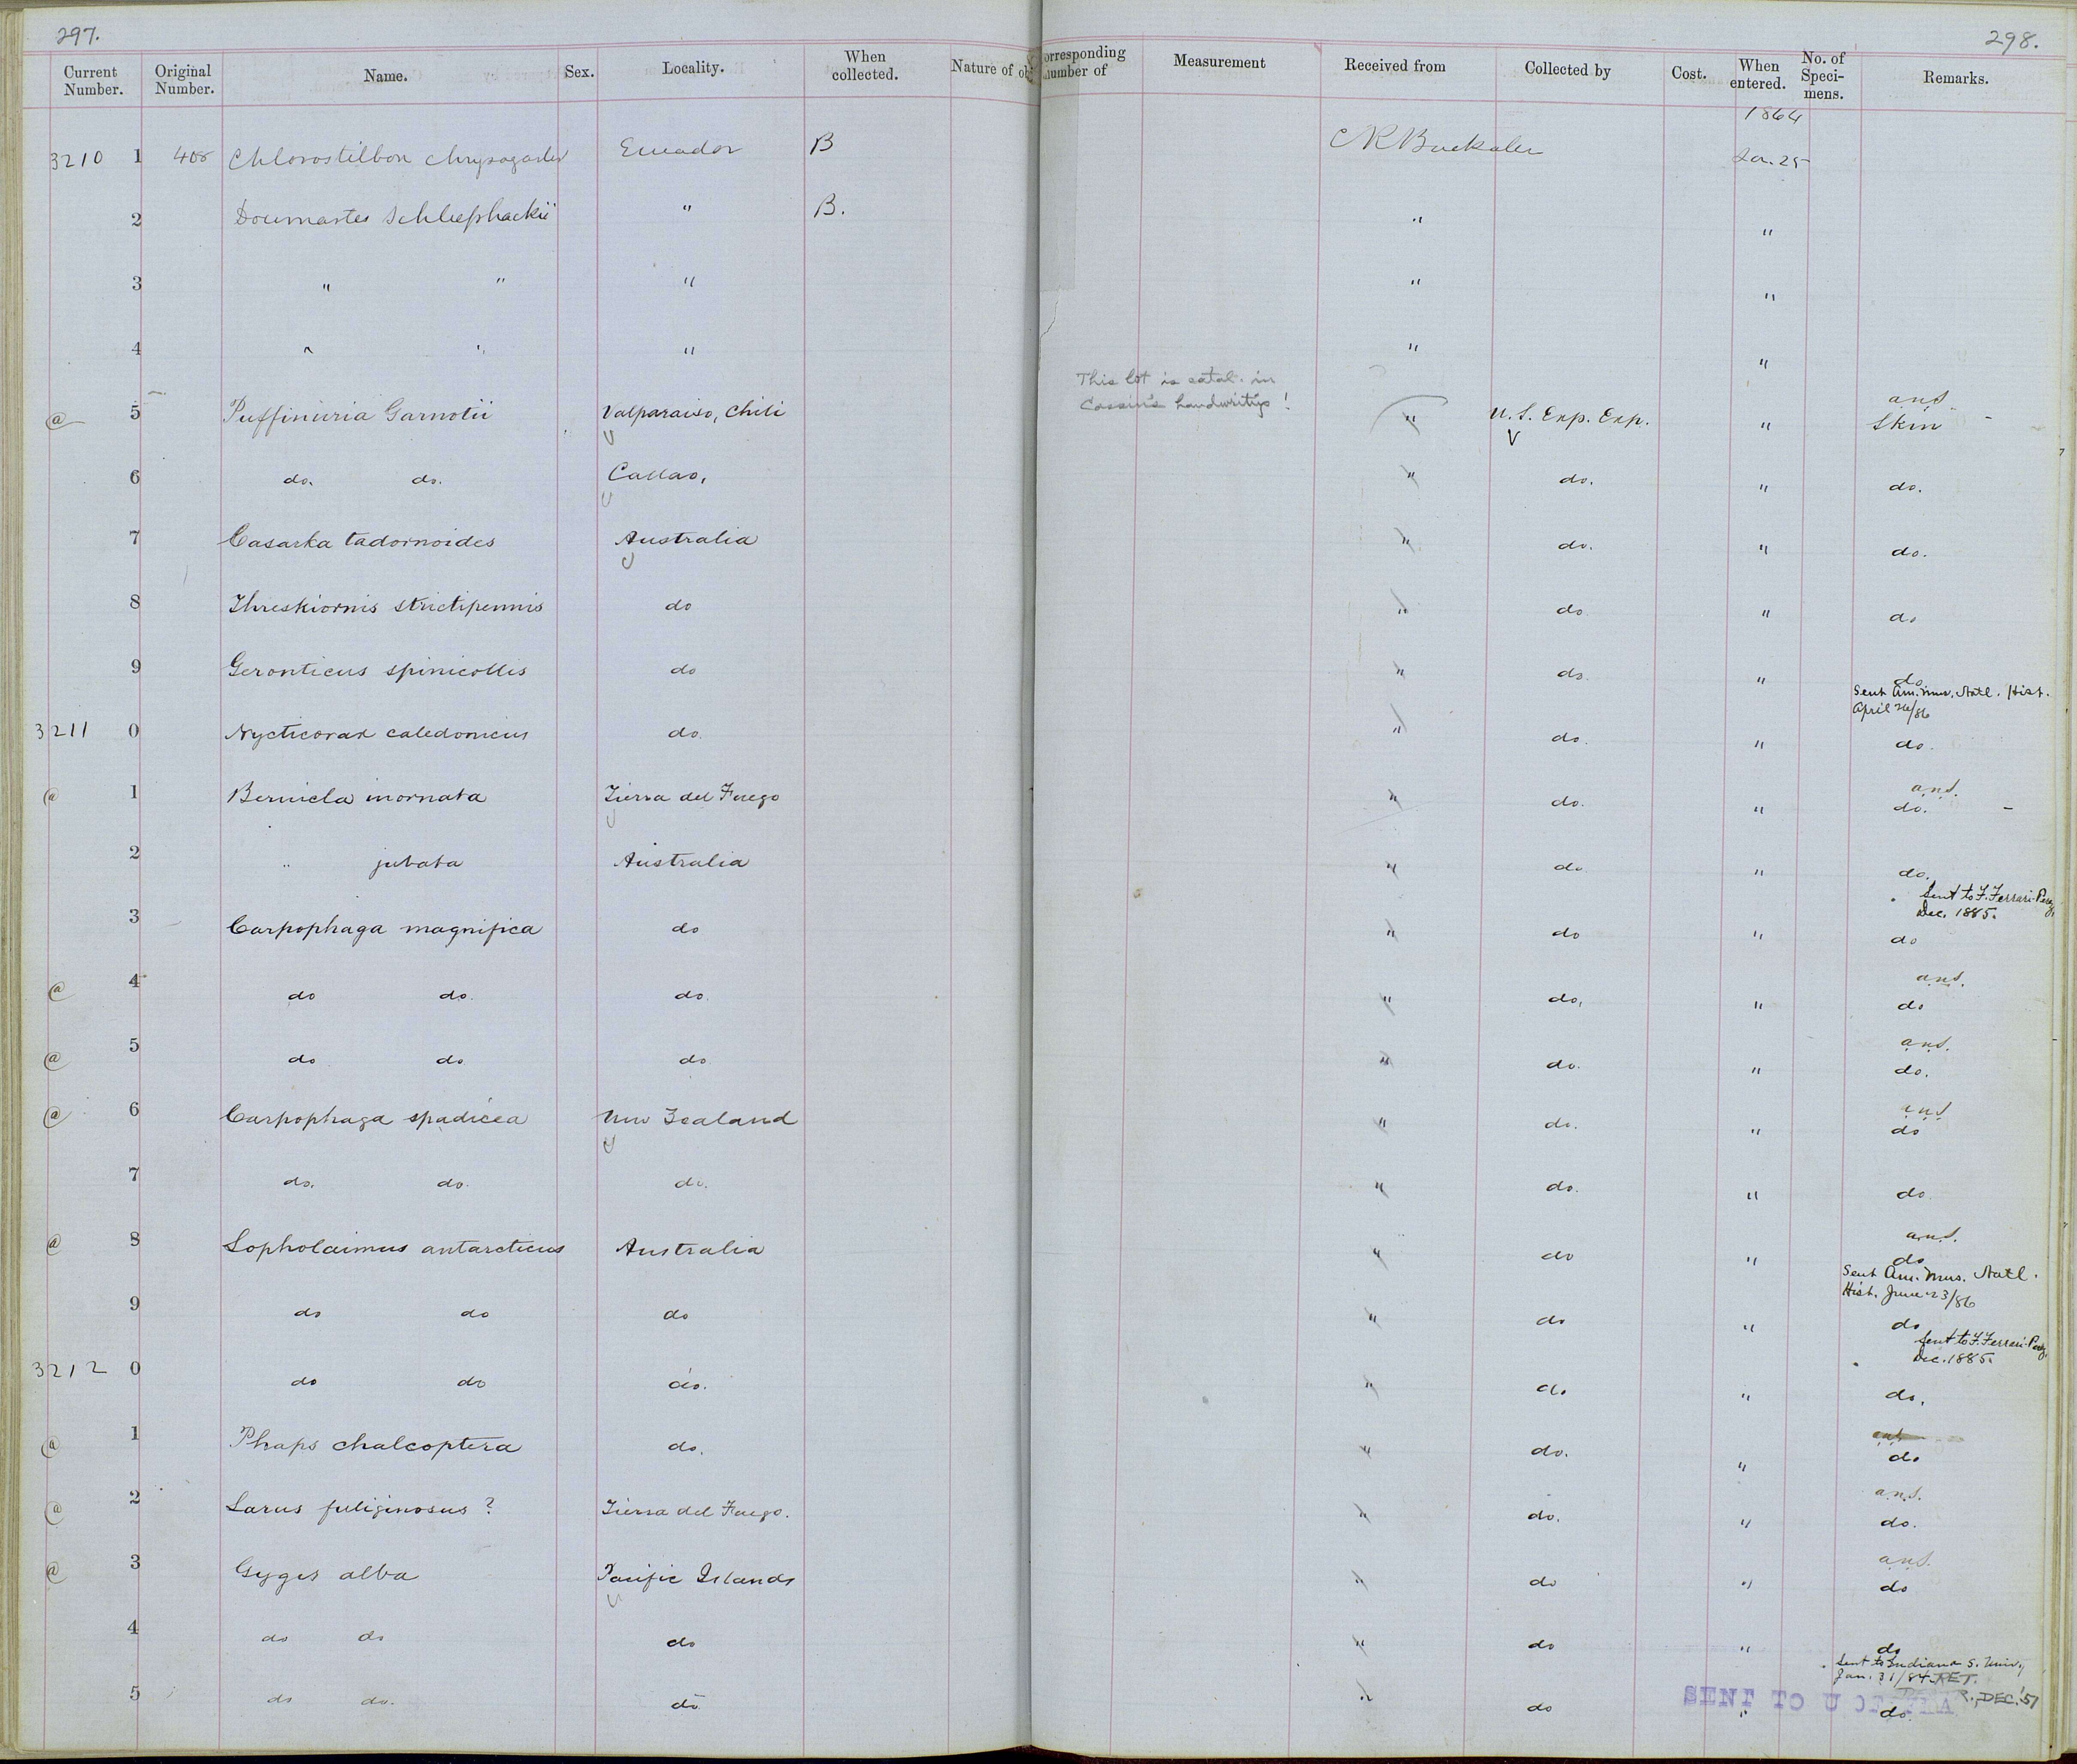 297.
298.
Current Number. Original Number. Name. Sex. Locality. When collected. Nature of ob orresponding number of Measurement Received from Collected by Cost. When entered. No. of Speci-mens. Remarks.
1864
3210 1 408 Chlorostilbon Ecuador B C R Buckalew Jan. 25
2 Docimastes Schliephackii " B. " "
3 " " " " "
4 " " " " "
This lot is catal. in
Cassin's handwriting!
ans.
@ 5 Puffinuria Garnotii Valparaiso, Chili " U. S. Exp. Exp. " Skin
6 do. do. Callao, " do. " do.
7 Casarka tadornoides Australia " do. " do.
8 Threskiornis strictipennis do " do " do
9 Geronticus spinicollis do " do " do
Sent Am. Mus. Natl. Hist.
April 26/86
3211 0 Nycticorax caledonicus do. " do. " do.
ans.
@ 1 Bernicla inornata Tierra del Fuego " do. " do.
2 " jubata Australia " do " do.
Sent to F. Ferrari-Perez,
Dec. 1885.
3 Carpophaga magnifica do " do " do
ans.
@ 4 do do. do. " do. " do
ans.
@ 5 do do do " do. " do.
ans
@ 6 Carpophaga spadicea New Zealand " do. " do
7 do. do. do. " do. " do
ans.
@ 8 Lopholaimus antarcticus Australia " do " do
Sent Am. Mus. Natl.
Hist. June 23/86
9 do do do " do " do
Sent to F. Ferrari-Perez,
Dec. 1885.
3212 0 do do do. " do " do.
ans
@ 1 Phaps chalcoptera do. " do. " do
ans.
@ 2 Larus fuliginosus ? Tierra del Fuego. " do. " do.
ans.
@ 3 Gyges alba Pacific Islands " do " do
4 do do do " do " do
Sent to Indiana S. Univ.,
Jan. 31/84 RET.
DEC. '51
SENT TO U OF
5 do do. do " do " do.